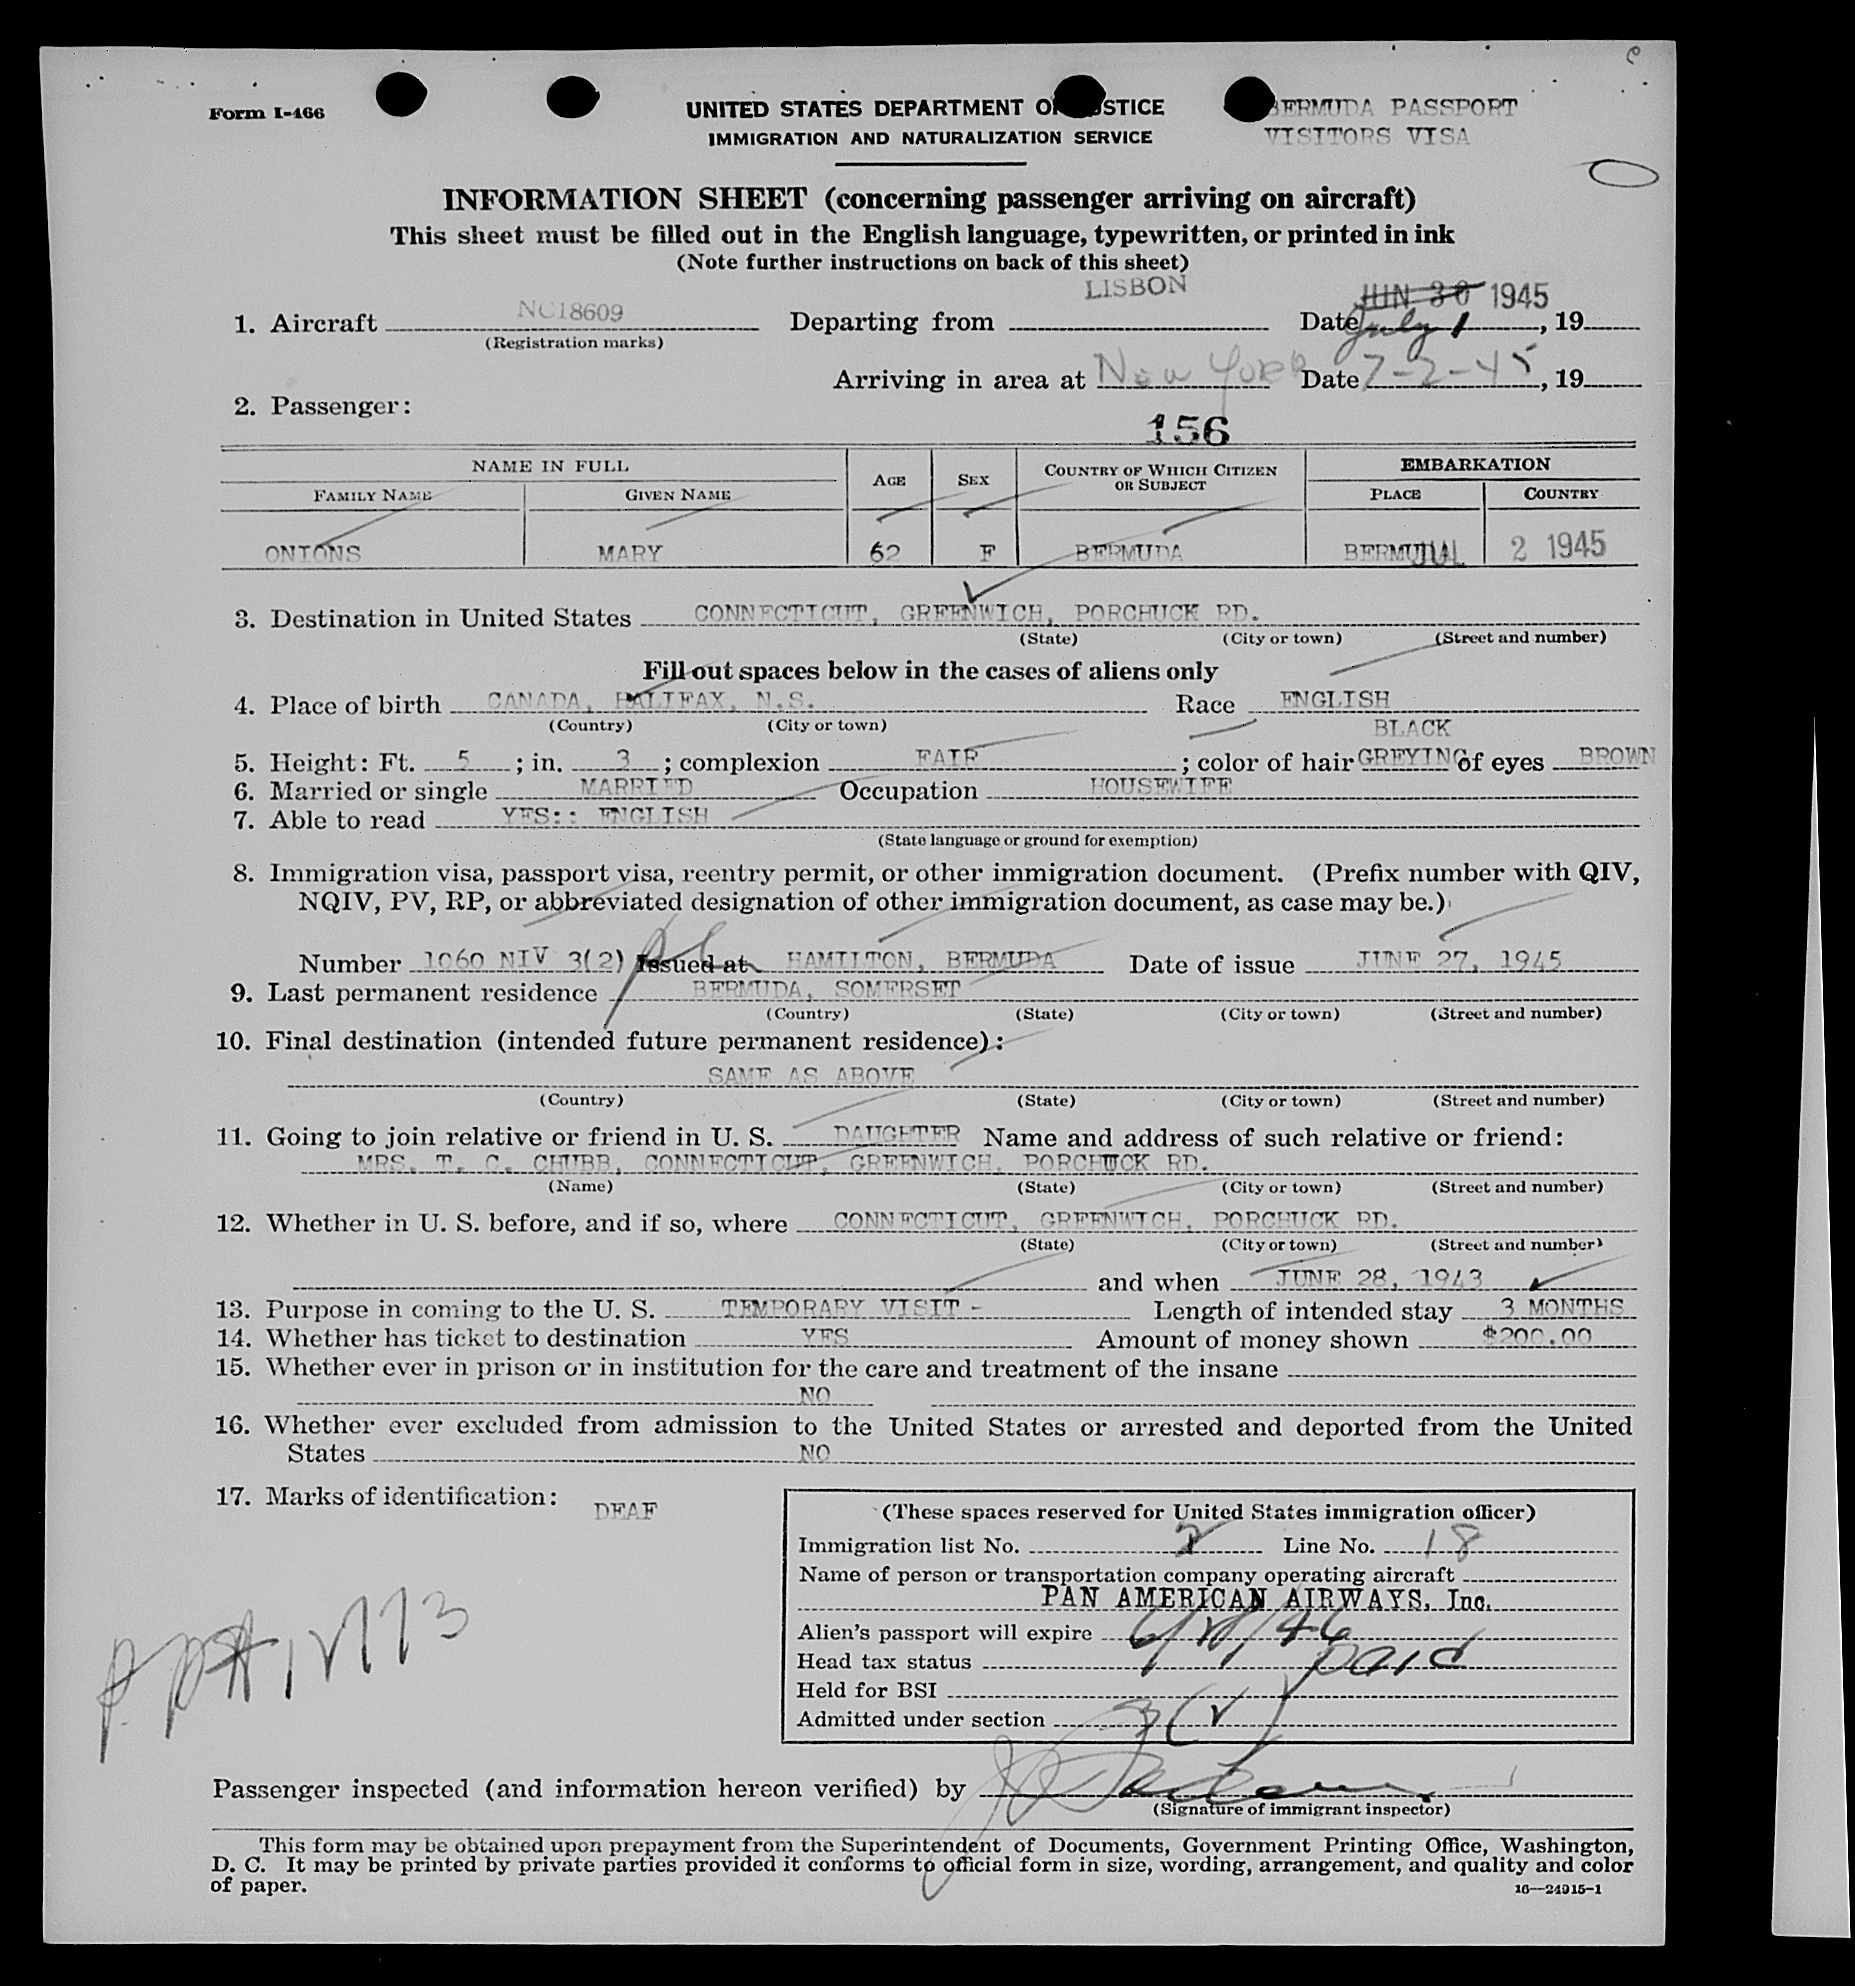 Form I-466
UNITED STATES DEPARTMENT OF JUSTICE
BERMUDA PASSPORT
IMMIGRATION AND NATURALIZATION SERVICE
VISITORS VISA
INFORMATION SHEET (concerning passenger arriving on aircraft)
This sheet must be filled out in the English language, typewritten, or printed in ink
(Note further instructions on back of this sheet)
1. Aircraft NC18609 Departing from LISBON Date JUN 30 1945 July 1, 19
(Registration marks)
Arriving in area at New York Date 7-2-45, 19
2. Passenger:
156
NAME IN FULL AGE SEX COUNTRY OF WHICH CITIZEN OR SUBJECT EMBARKATION
FAMILY NAME GIVEN NAME PLACE COUNTRY
ONIONS MARY 62 F BERMUDA BERMUDA JUL 2 1945
3. Destination in United States CONNECTICUT, GREENWICH, PORCHUCK RD.
(State) (City or town) (Street and number)
Fill out spaces below in the cases of aliens only
4. Place of birth CANADA, HALIFAX, N.S. Race ENGLISH
(Country) (City or town)
5. Height: Ft. 5; in. 3; complexion FAIR; color of hair BLACK GREYING of eyes BROWN
6. Married or single MARRIED Occupation HOUSEWIFE
7. Able to read YES:: ENGLISH
(State language or ground for exemption)
8. Immigration visa, passport visa, reentry permit, or other immigration document. (Prefix number with QIV,
NQIV, PV, RP, or abbreviated designation of other immigration document, as case may be.)
Number 1060 NIV 3(2) Issued at HAMILTON, BERMUDA Date of issue JUNE 27, 1945
9. Last permanent residence BERMUDA, SOMERSET
(Country) (State) (City or town) (Street and number)
10. Final destination (intended future permanent residence):
SAME AS ABOVE
(Country) (State) (City or town) (Street and number)
11. Going to join relative or friend in U. S. DAUGHTER Name and address of such relative or friend:
MRS. T. C. CHUBB, CONNECTICUT, GREENWICH, PORCHUCK RD.
(Name) (State) (City or town) (Street and number)
12. Whether in U. S. before, and if so, where CONNECTICUT, GREENWICH, PORCHUCK RD.
(State) (City or town) (Street and number)
and when JUNE 28, 1943
13. Purpose in coming to the U. S. TEMPORARY VISIT - Length of intended stay 3 MONTHS
14. Whether has ticket to destination YES Amount of money shown $200.00
15. Whether ever in prison or in institution for the care and treatment of the insane
NO
16. Whether ever excluded from admission to the United States or arrested and deported from the United
States NO
17. Marks of identification: DEAF
(These spaces reserved for United States immigration officer)
Immigration list No. 2 Line No. 18
Name of person or transportation company operating aircraft
PAN AMERICAN AIRWAYS, Inc.
Alien's passport will expire
Head tax status paid
Held for BSI
Admitted under section
Passenger inspected (and information hereon verified) by
(Signature of immigrant inspector)
This form may be obtained upon prepayment from the Superintendent of Documents, Government Printing Office, Washington,
D. C. It may be printed by private parties provided it conforms to official form in size, wording, arrangement, and quality and color
of paper.
16—24915-1